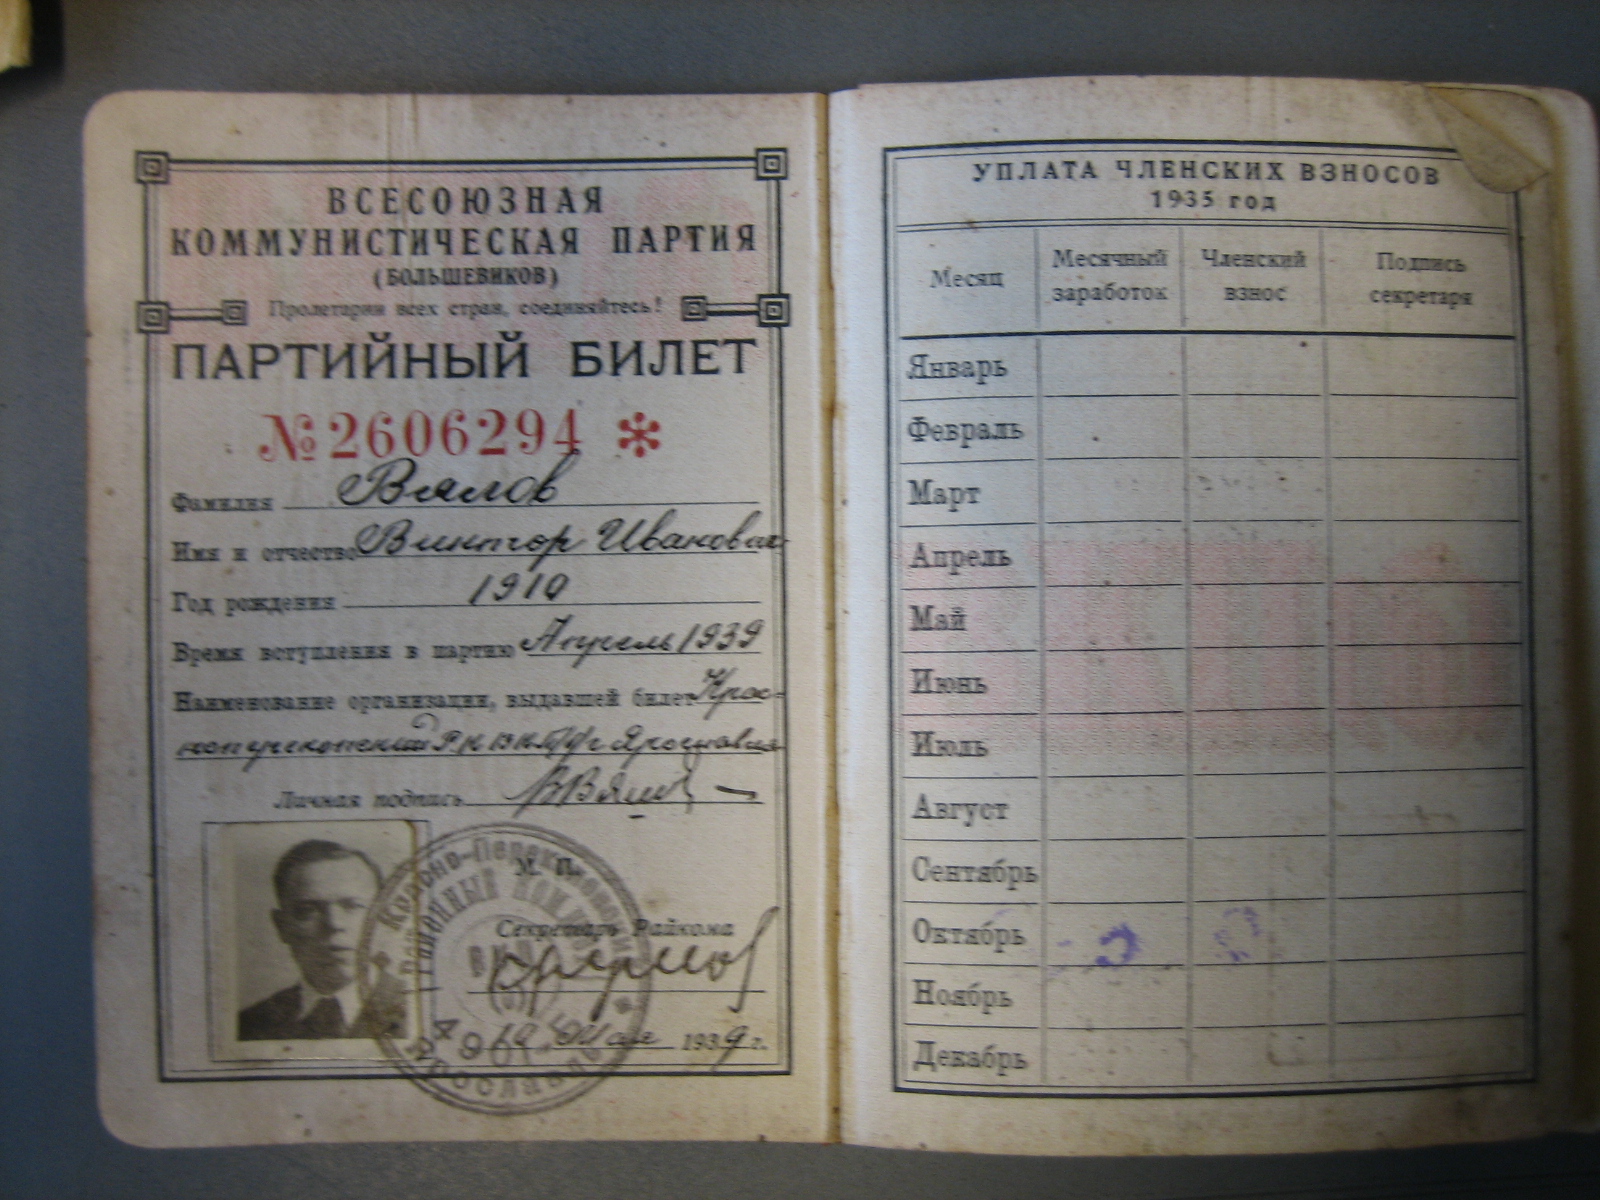 ВСЕСОЮЗНАЯ
КОММУНИСТИЧЕСКАЯ ПАРТИЯ
(БОЛЬШЕВИКОВ)
Пролетарии всех стран, соединяйтесь!
ПАРТИЙНЫЙ БИЛЕТ
№ 2606294 *
Фамилия Вялов
Имя и отчество Виктор Иванович
Год рождения 1910
Время вступления в партию Апрель 1939
Наименование организации, выдавшей билет Крас-
ноперекопский РК ВКП(б) г. Ярославля
Личная подпись ВВялов
М. П.
Секретарь Райкома
19 мая 1939 г.
Красно-Перекопский
Районный Комитет
Ярославль
УПЛАТА ЧЛЕНСКИХ ВЗНОСОВ
1935 год
Месяц Месячный заработок Членский взнос Подпись секретаря
Январь
Февраль
Март
Апрель
Май
Июнь
Июль
Август
Сентябрь
Октябрь
Ноябрь
Декабрь